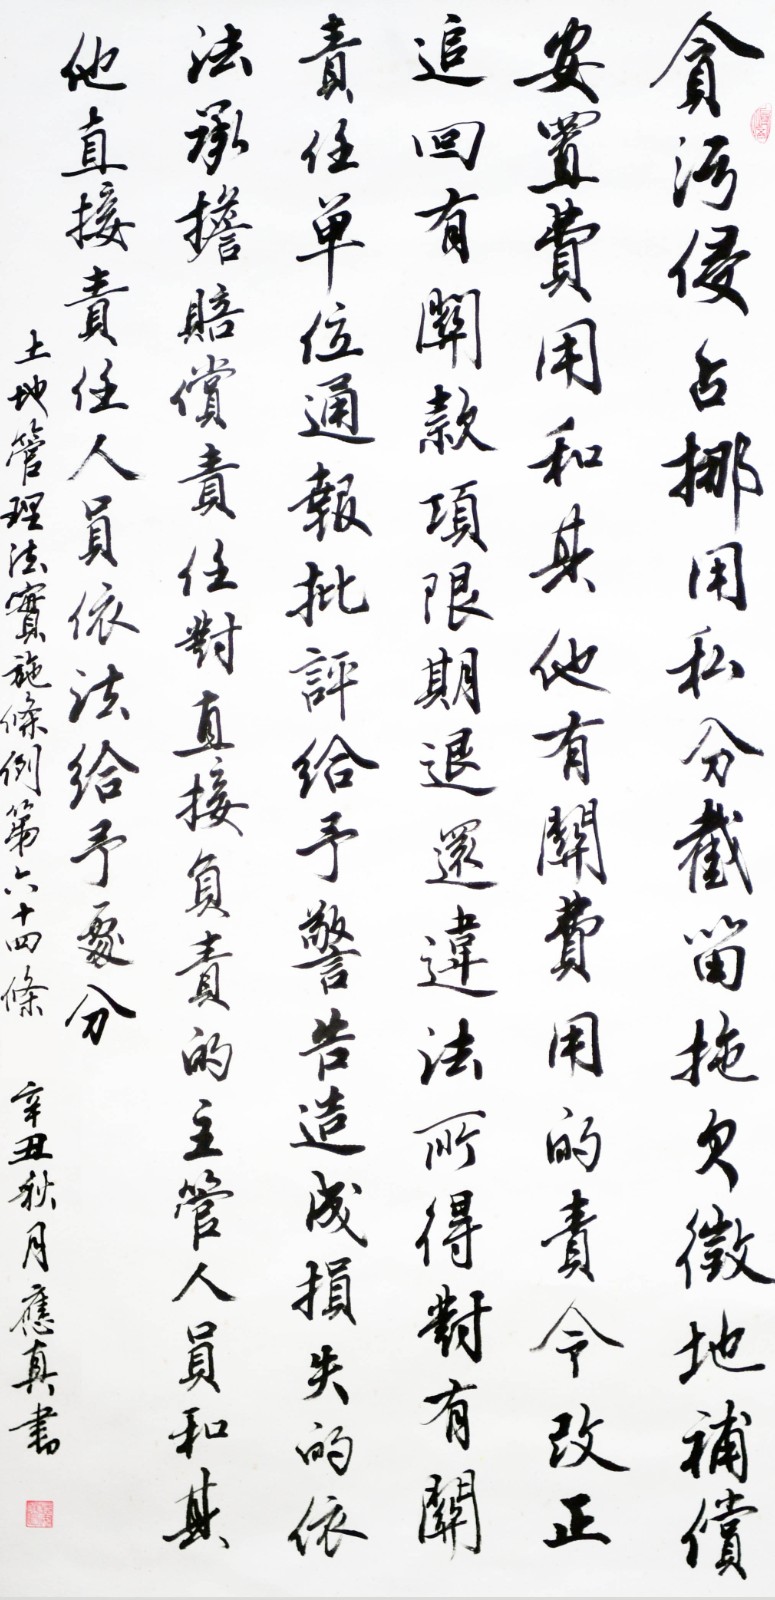 貪污侵占挪用私分截留拖欠徵地補償
安置費用和其他有關費用的責令改正
追回有關款項限期退還違法所得對有關
責任單位通報批評給予警告造成損失的依
法承擔賠償責任對直接負責的主管人員和其
他直接責任人員依法給予處分
土地管理法實施條例第六十四條 辛丑秋月應真書